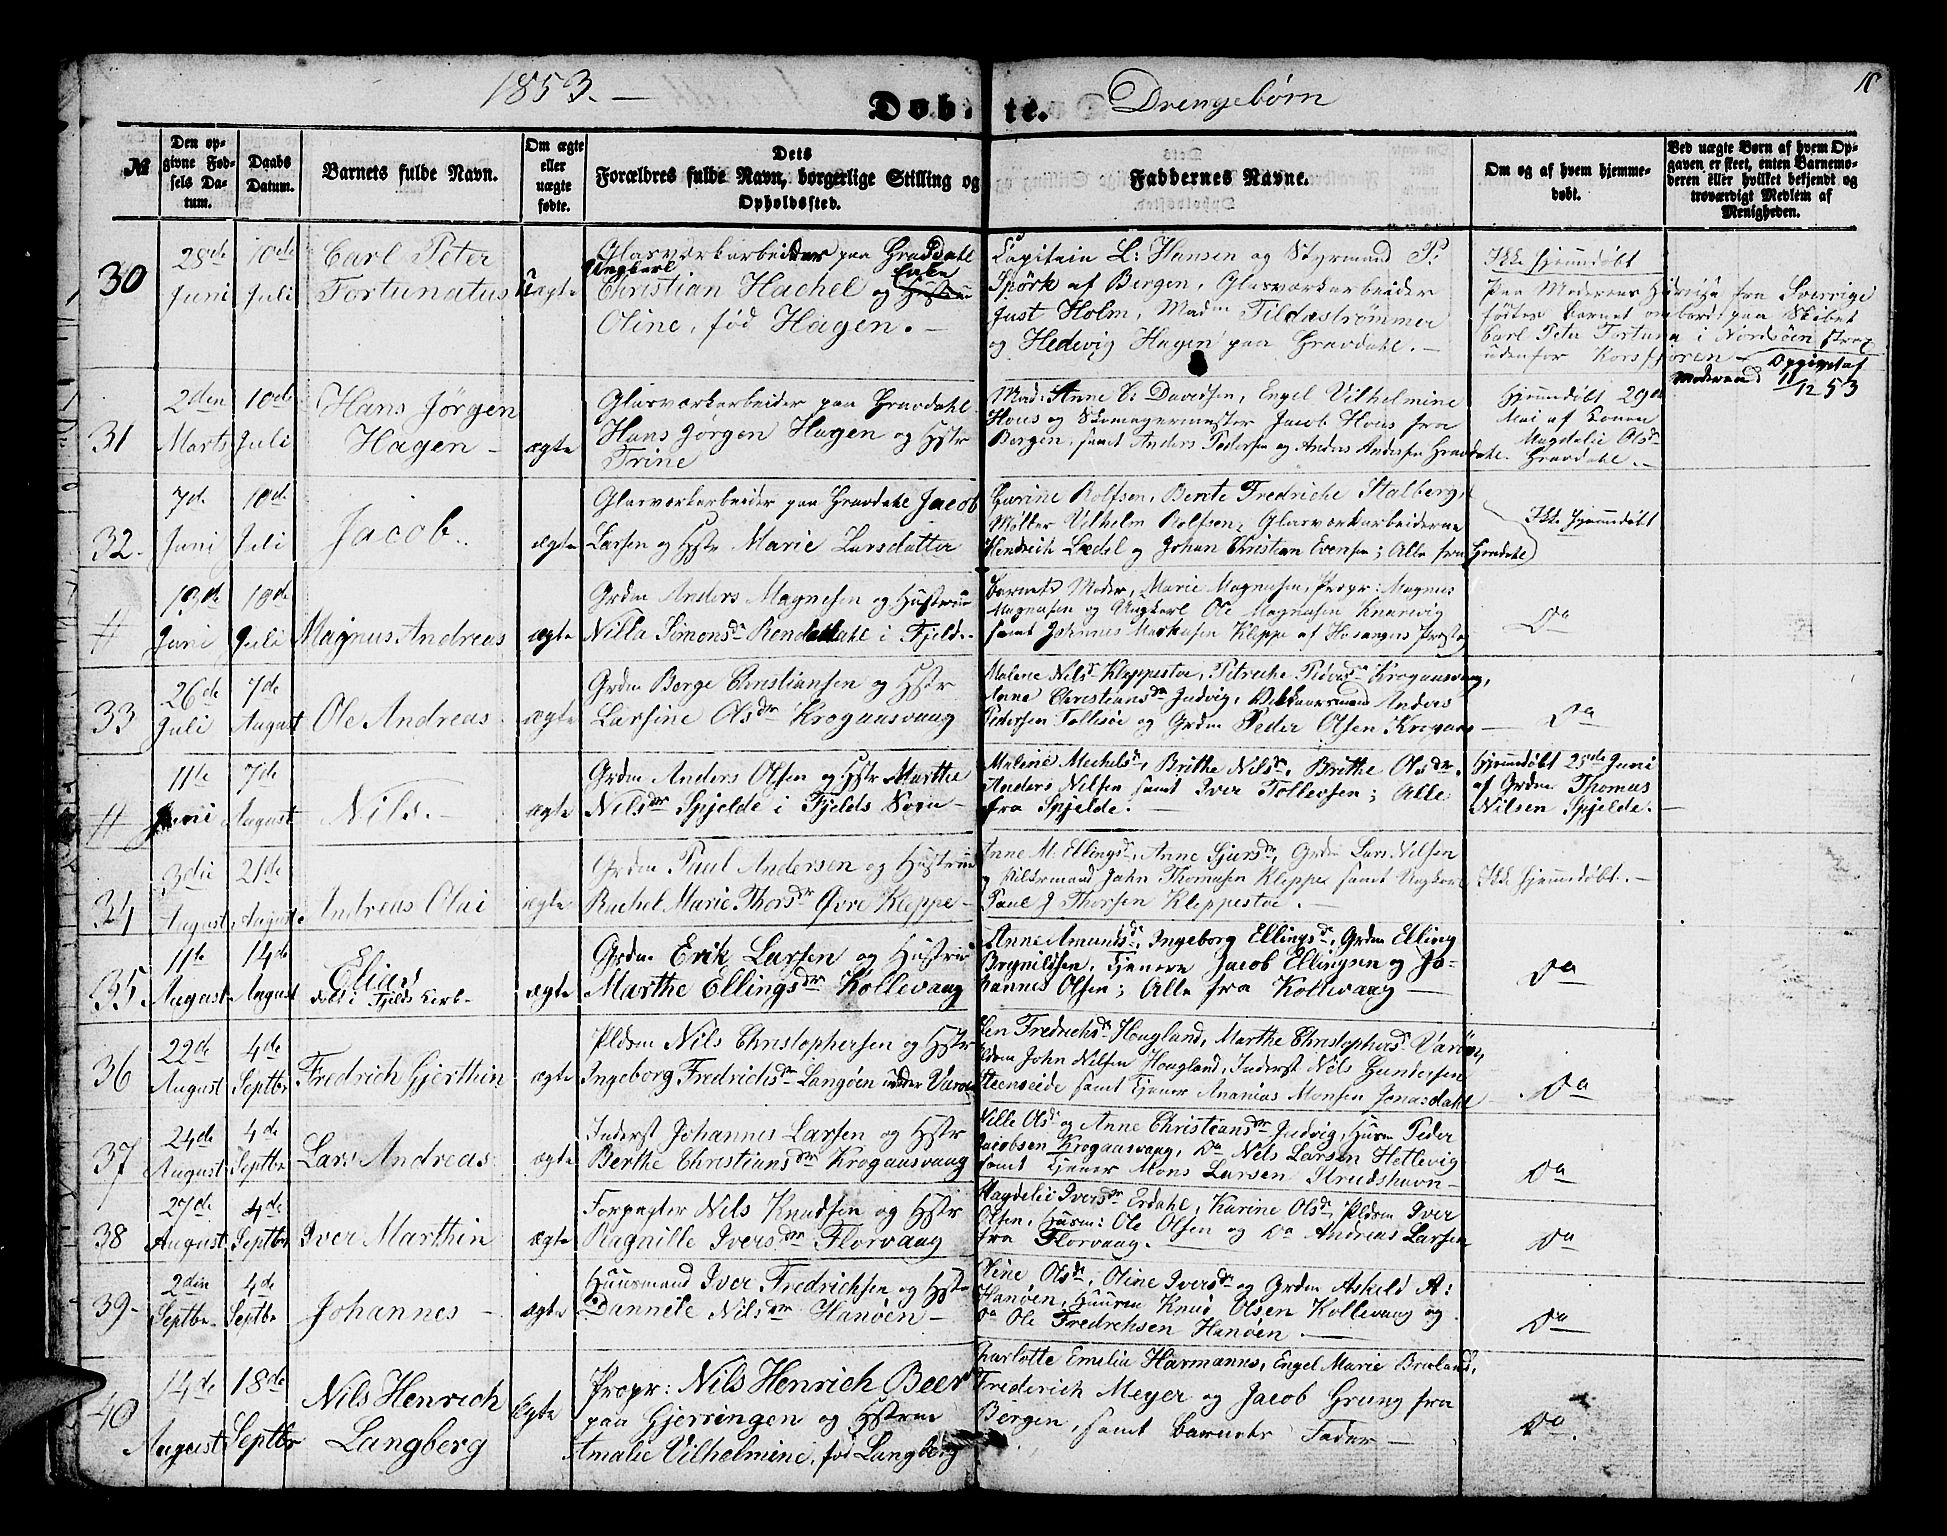 1853. —
Døbte.
Drengebørn
№
Den opgivne Fødsels Datum.
Daabs Datum.
Barnets fulde Navn.
Om ægte eller uægte fødte.
Dets Forældres fulde Navn, borgerlige Stilling og Opholdssted.
Faddernes Navne.
Om og af hvem hjemmedøbt.
Ved uægte Børn af hvem Opgaven er skeet, enten Barnemoderen eller hvilket bekjendt og troværdigt Medlem af Menigheden.
30
28de Juni
10de Juli
Carl Peter
Fortunatus
Uægte
Glasværkarbeider paa Gravdahl
Ungkarl
Christian Hachel og Enke
Oline, fød Hagen. —
Capitein L: Hansen og Styrmand P:
Spörk af Bergen, Glasværkarbeider
Just Holm, Madm Tilda Strømmer
og Hedevig Hagen paa Gravdahl. —
Ikke hjemmedøbt
Paa Moderens Hjemreise fra Sverrige
fødtes Barnet ombord paa Skibet
Carl Peter Fortuna i Nordsøen strax
udenfor Korsfjoren —
Opgivet af
Moderen 11/12 53
31
2den Marts
10de Juli
Hans Jörgen
Hagen —
ægte
Glasværkarbeider paa Gravdahl
Hans Jorgen Hagen og Hstr
Trine
Mad: Anne C: Davidsen, Engel Vilhelmine
Hous og Skomagermester Jacob Hous fra
Bergen, samt Anders Pedersen og Anders Andersen Gravdahl.
Hjemmedøbt 29de
Mai af Konen
Magdelie Olsdr
Gravdahl. —
32.
7de Juni
10de Juli
Jacob.
ægte
Glasværkarbeider paa Gravdahl Jacob
Larsen og Hstr Marie Larsdatter
Gurine Rolfsen, Bente Fredriche Stalberg,
Møller Vilhelm Rolfsen, Glasværkarbeiderne
Hendrich Ledel og Johan Christian Evensen; Alle fra Gravdahl
Ikke hjemmedøbt
#
19de Juni
10de Juli
Magnus Andreas
ægte
Grdm Anders Magnesen og Hustrue
Nilla Simonsdr Rendedahl i Fjeld. —
Barnets Moder, Marie Magnesen, Propr: Magnus
Magnesen og Ungkarl Ole Magnesen Knarvig
samt Johannes Markusen Kleppe af Hosangers Præsteg
Do
33
26de Juli
7de August
Ole Andreas
ægte
Grdm Borge Christiansen og Hstr
Larsine Olsdr Krogaasvaag
Malene Nilsdr Kleppestøe, Petriche Krogaasvaag,
Anne Christiansdr Judvig, Anders
Pedersen Follesöe og Grdm Peder Olsen Krogaas —
Do
#
11te Juni
7de August
Nils. —
ægte
Grdm Anders Olsen og Hstr Marthe
Nilsdr Spjelde i Fjelds Sogn —
Malene Michelsdr, Brithe Nilsdr, Brithe Olsdr,
Anders Nilsen samt Iver Tollevsen; Alle
fra Spjelde. —
Hjemmedøbt 25de Juni
af Grdm Thomas
Nilsen Spjelde. —
34
3die August
21de August
Andreas Olai
ægte
Grdm Paul Andersen og Hustrue
Rachel Marie Thorsdr Øvre Kleppe —
Anne M: Ellingsdr, Anne Sjursdr, Grdm Lars Nilsen
og Pildsmand John Thomasen Kleppe samt Ungkarl
Paul J Thorsen Kleppestøe. —
Ikke hjemmedøbt. —
35
11te August
14de August
Elias
døbt i Fjelds Kirke
ægte
Grdm Erik Larsen og Hustrue
Marthe Ellingsdr Kollevaag
Anne Amundsdr, Ingeborg Ellingsdr, Grdm Elling
Brynildsen, Tjenere Jacob Ellingsen og Jo-
hannes Olsen; Alle fra Kollevaag —
Do
36
22de August
4de Septbr
Fredrich Gjerthin
ægte
Pldsm Nils Christophersen og Hstr
Ingeborg Fredrichsdr Langøen under Varøen
Fredrichsdr Hougland, Marthe Christophersdr Varöen,
Pldsm John Nilsen Hougland, Inderst Nils Gundersen
Steenseide samt Tjener Ananias Monsen Jonasdahl
Do
37
24de August
4de Septbr
Lars Andreas
ægte
Inderst Johannes Larsen og Hstr
Berthe Christiansdr Krogaasvaag
Nille Olsdr og Anne Christiansdr Judvig, Husm Peder
Jacobsen Krogaasvaag, Do Nels Larsen Hetlevig
samt Tjener Mons Larsen Strudshavn —
Do
38
27de August
4de Septbr
Iver Marthin
ægte
Forpagter Nils Knudsen og Hstr
Ragnille Iversdr Florvaag
Magdelie Iversdr Erdahl, Karine Olsdr, Pldsm Iver
Olsen, Husm: Ole Olsen og Do Andreas Larsen
fra Florvaag. —
Do
39 —
2den Septbr
4de Septbr
Johannes —
ægte
Huusmand Iver Fredrichsen og Hstr
Dannele Nilsdr Hanøen —
Stine Olsdr, Oline Iversdr og Grdm Askeld A:
Hanøen, Huusm Knud Olsen Kollevaag og
Do Ole Fredrichsen Hanøen. —
Do
40
14de August
18de Septbr
Nils Henrich
Langberg
Ægte
Propr: Nils Henrich Beer
paa Gjerringen og Hstrue
Amalie Vilhelmine, fød Langberg
Charlotte Emilia Harmanns, Engel Marie Bruland,
Frederich Meyer og Jacob Grung fra
Bergen, samt Barnets Fader —
Do.